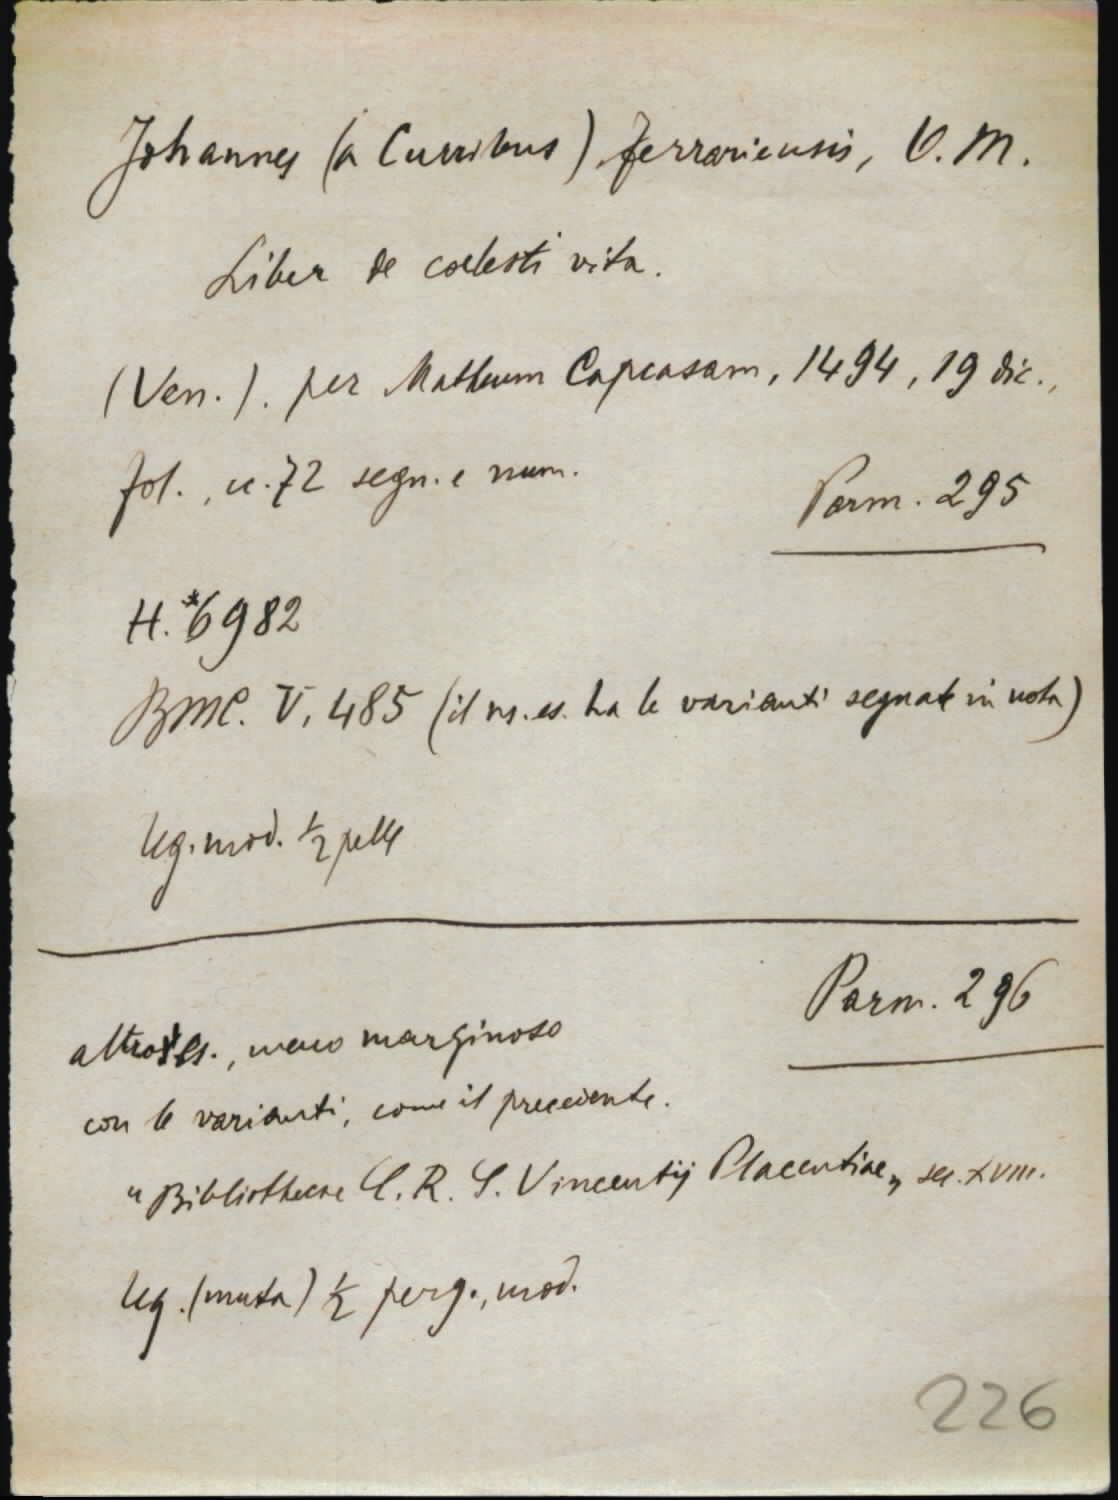 Johannes (a Curribus) ferrariensis, O. M.
Liber de coelesti vita.
(Ven.). per Matheum Capcasam, 1494, 19 dic.,
fol., cc. 72 segn. e num.
Parm. 295
H.*6982
BMC. V, 485 (il ns. es. ha le varianti segnate in nota)
leg. mod. ½ pelle
Parm. 296
altro es., meno marginoso
con le varianti, come il precedente.
"Bibliothecae C. R. S. Vincentij Placentiae„ sec. XVIII.
leg. (muta) ½ perg., mod.
226